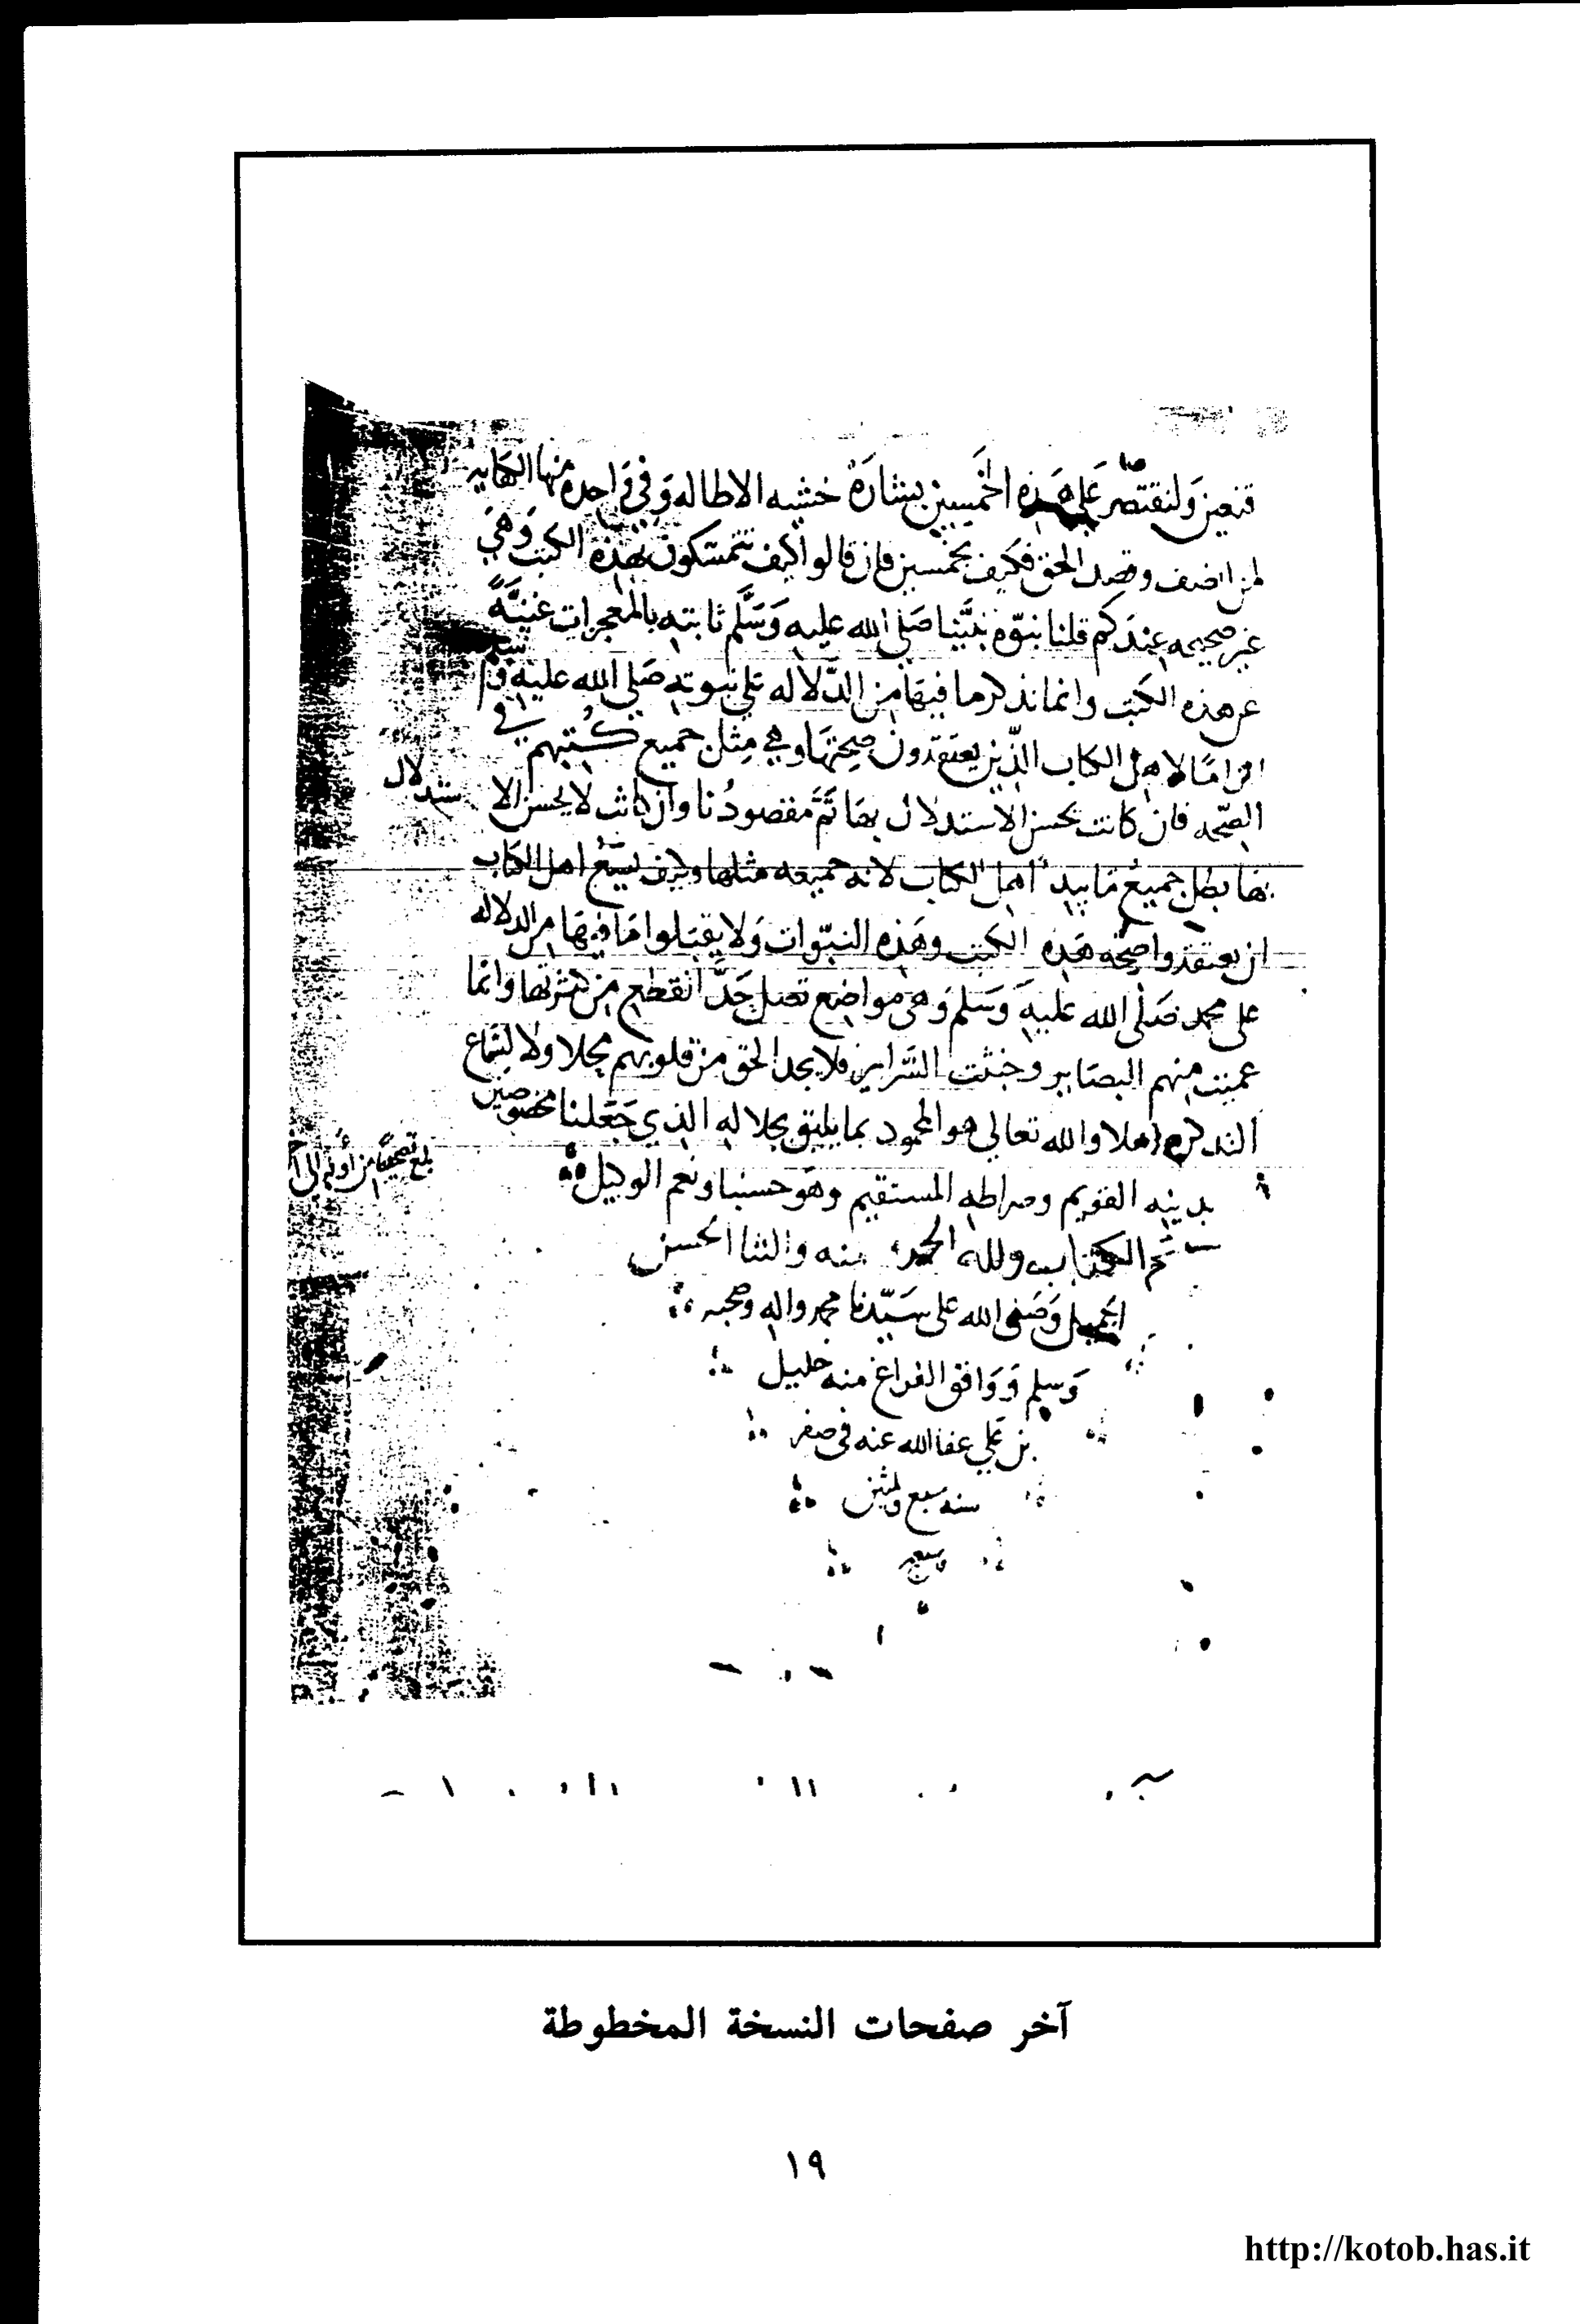 ولنقتصر على هذه الخمسين بشارة خشيه الاطاله وفي واحده منها الكفايه
لمن انصف وقصد الحق فكيف بخمسين فان قالوا كيف تتمسكون بهذه الكتب وهي
غير صحيحه عندكم قلنا نبوّه نبيّنا صلى الله عليه وسلّم ثابته بالمعجزات غنيّةً
عن هذه الكتب وانما نذكر ما فيها من الدّلاله على نبوته صلى الله عليه وسلم
الزامًا لاهل الكتاب الذّين يعتقدون صحتها وهي مثل جميع كتبهم في
الصّحه فان كانت يحسن الاستدلال بها تمّ مقصودُنا وان كانت لا يحسن الا
ستدلال
بها بطل جميعُ ما بيد اهل الكتاب لانه جميعه مثلها وكيف يسعُ اهل الكتاب
ان يعتقدوا صحّه هذه الكتب وهذه النبوّات ولا يقبلوا ما فيها من الدلاله
على محمد صلى الله عليه وسلم وهي مواضع تصل حدَّ القطع من كثرتها وانما
عميت منهم البصاير وخبثت السّراير فلا يجد الحق من قلوبهم محلا ولا لسماع
التذكره اهلا والله تعالى هو المحمود بما يليق بجلاله الذي جعلنا مخصوصين
بدينه القويم وصراطه المستقيم وهو حسبنا ونعم الوكيل
بلغ تصحيحًا من أوله إلى
تم الكتاب ولله الحمد منه والثنا الحسن
الجميل وصلى الله على سيّدنا محمد واله وصحبه
وسلم ووافق الفراغ منه خليل
بن علي عفا الله عنه في صفر
سنه سبع
آخر صفحات النسخة المخطوطة
١٩
http://kotob.has.it